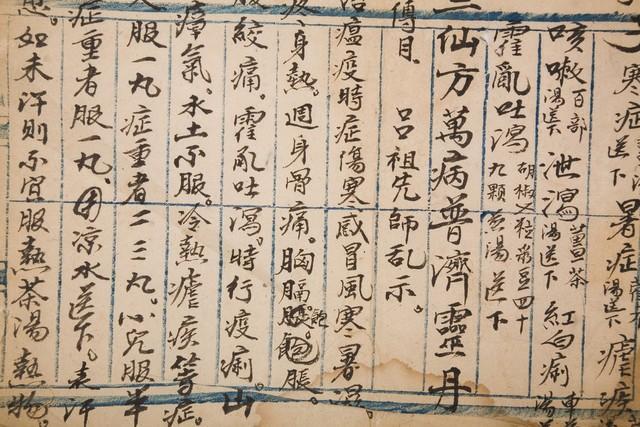 寒症 送下 暑症 湯送下 瘧疾
咳嗽百部湯送下 泄瀉薑茶湯送下 紅白痢
霍亂吐瀉 胡椒 粒菉豆四十九顆煎湯送下
三仙方萬病普濟靈丹
傳目。 呂祖先師乩示。
瘟疫時症傷寒感冒風寒暑濕。
身熱。週身骨痛。胸膈飽脹。
服絞痛。霍亂吐瀉。時行疫痢。山
瘴氣。水土不服。冷熱瘧疾等症。
服一丸症重者二三丸。小兒服半
症重者服一丸。用凉水送下。表汗
如未汗則不宜服熱茶湯熱物。